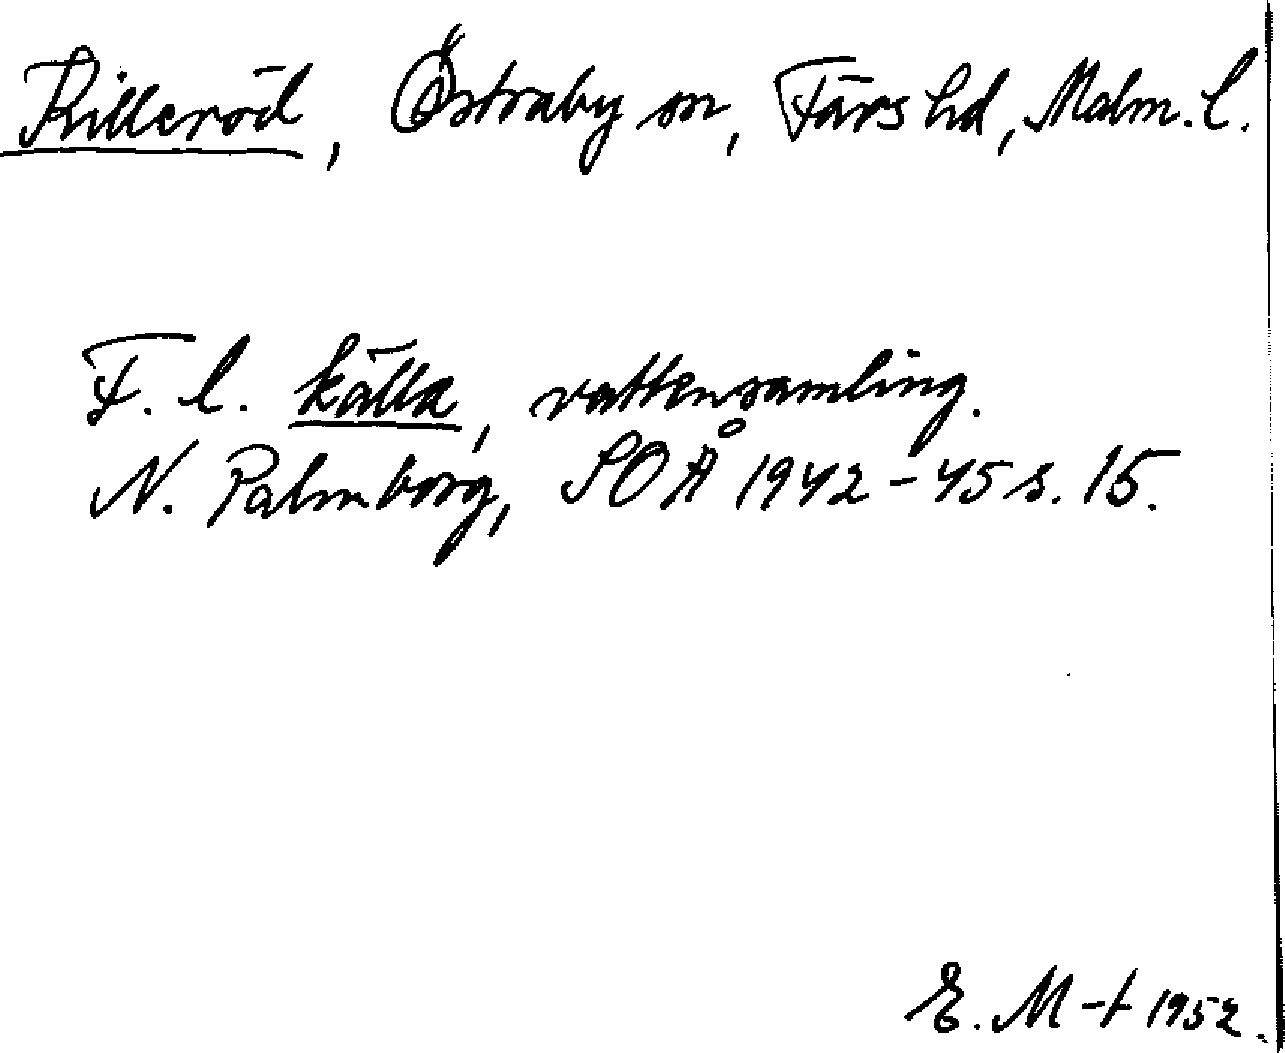 Killeröd, Östraby sn, Färs hd, Malm. l.
F. l. källa, vattensamling.
N. Palmborg, SOÅ 1942-45 s. 15.
E. M-t 1952.